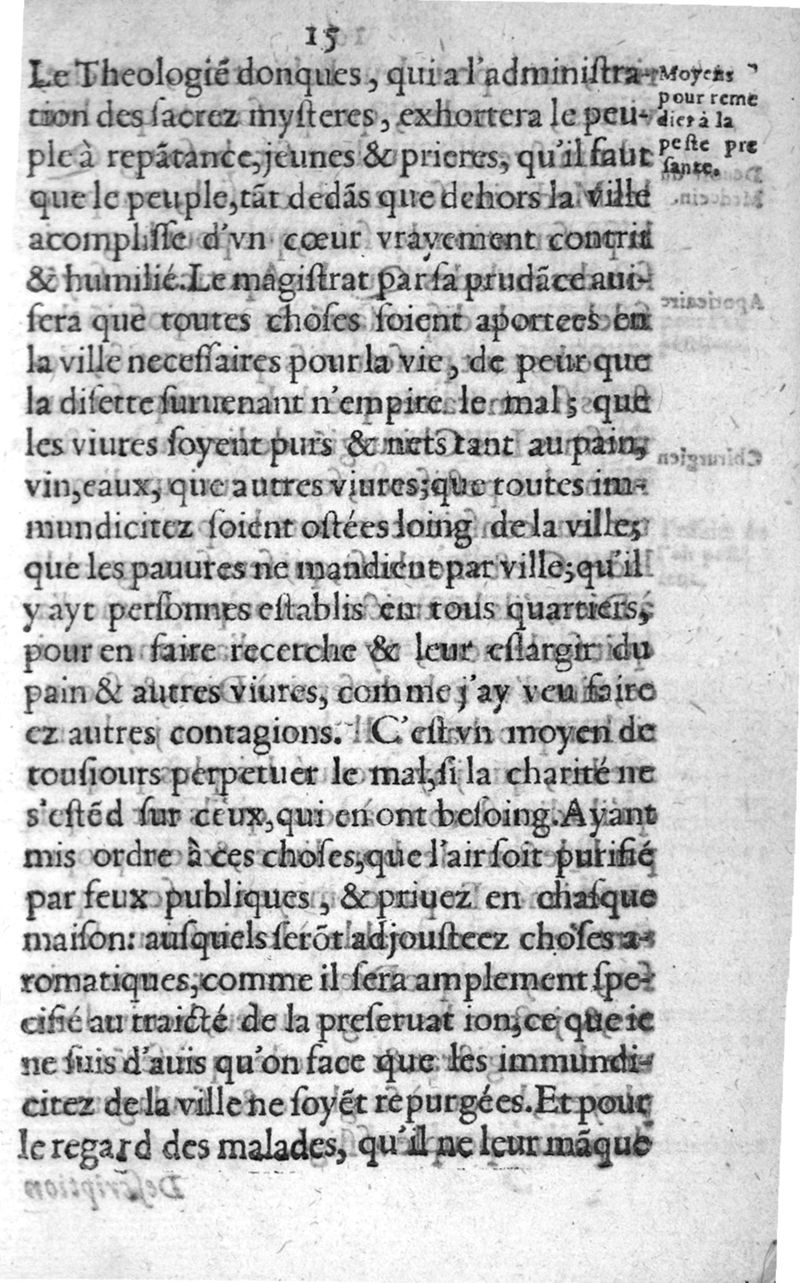 15
Le Theologiẽ donques, qui a l'adminiſtra-
tion des ſacrez myſteres, exhortera le peu-
ple à repãtance, jeunes & prieres, qu'il faut
que le peuple, tãt dedãs que dehors la ville
acompliſſe d'vn cœur vrayement contrit
& humilié. Le magiſtrat par ſa prudãce aui-
ſera que toutes choſes ſoient aportees en
la ville neceſſaires pour la vie, de peur que
la diſette ſuruenant n'empire le mal; que
les viures ſoyent purs & nets tant au pain,
vin, eaux, que autres viures; que toutes im-
mundicitez ſoient oſtées loing de la ville;
que les pauures ne mandient par ville; qu'il
y ayt perſonnes eſtablis en tous quartiers,
pour en faire recerche & leur eſlargir du
pain & autres viures, comme j'ay veu faire
ez autres contagions. C'eſt vn moyen de
touſiours perpetuer le mal, ſi la charité ne
s'eſtẽd ſur ceux, qui en ont beſoing. Ayant
mis ordre à ces choſes, que l'air ſoit purifié
par feux publiques, & priuez en chaſque
maiſon: auſquels ſerõt adjouſteez choſes a-
romatiques, comme il ſera amplement ſpe-
cifié au traicté de la preſeruat ion; ce que ie
ne ſuis d'auis qu'on face que les immundi-
citez de la ville ne ſoyẽt repurgées. Et pour
le regard des malades, qu'il ne leur mãque
Moyens
pour reme
dier à la
peſte pre
ſante.